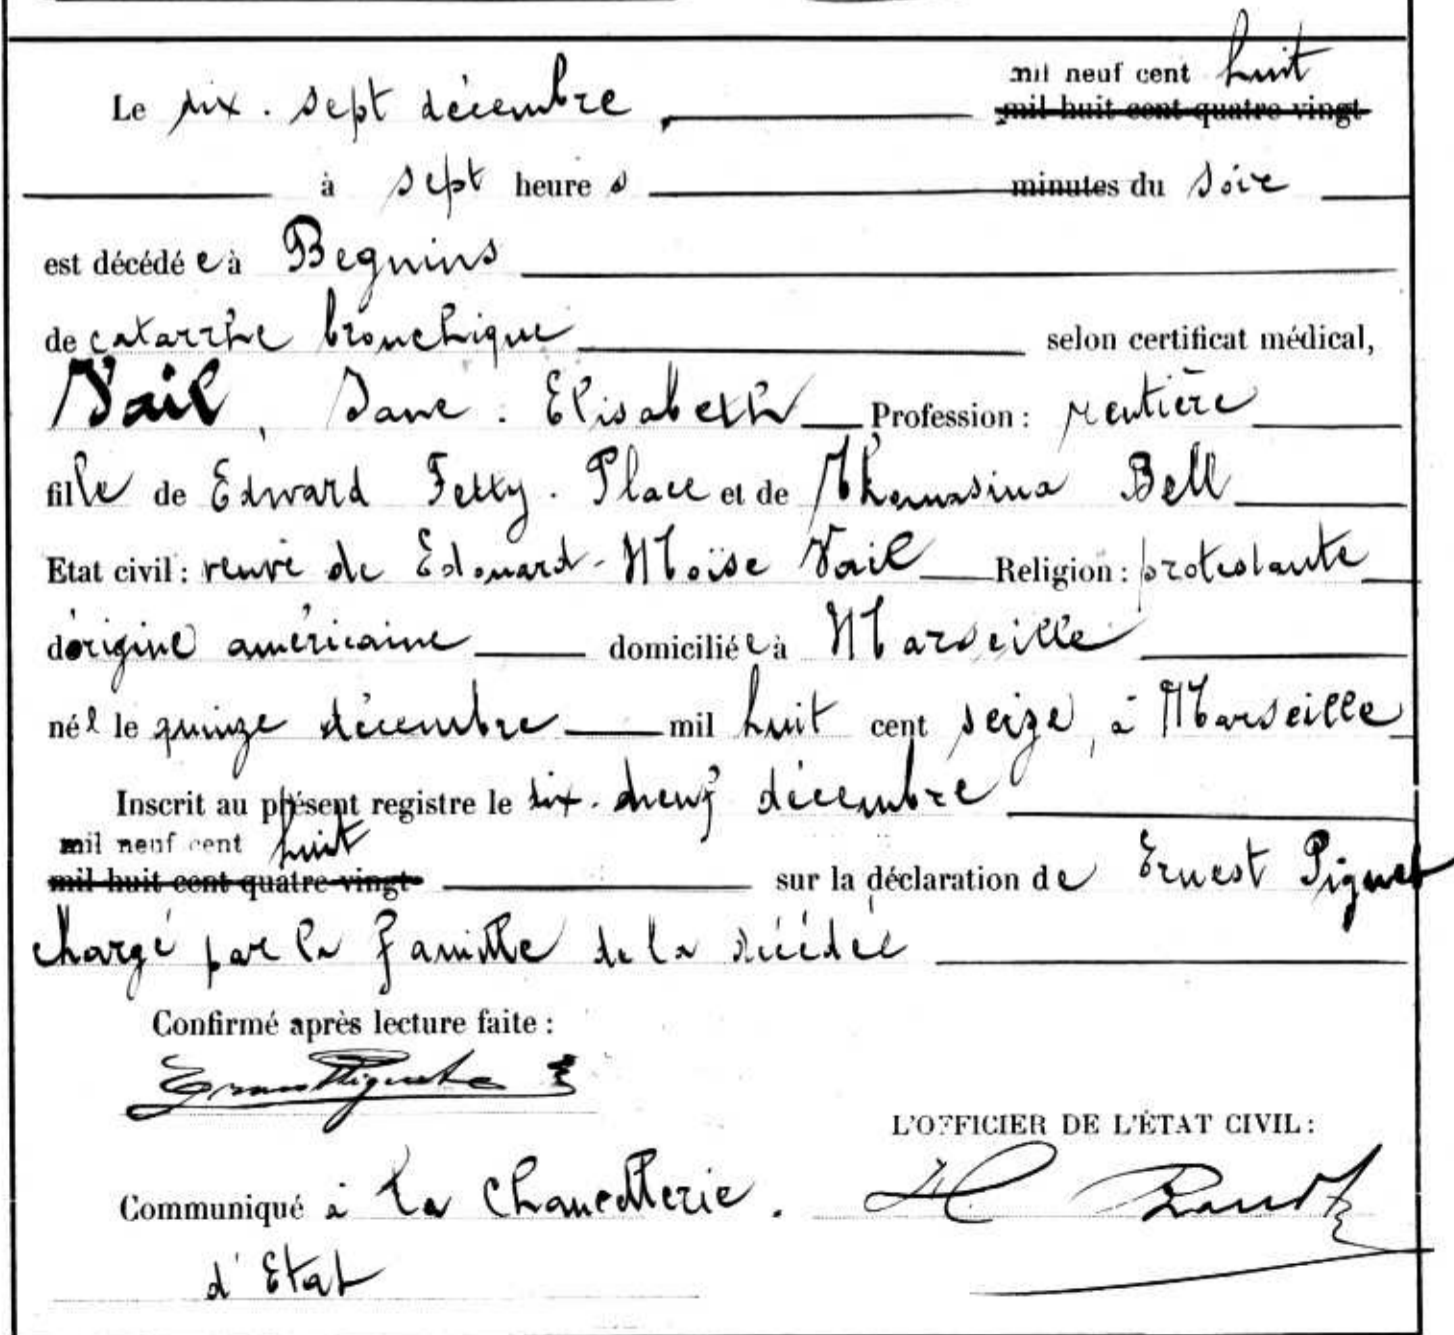 mil neuf cent huit
Le dix-sept décembre mil huit cent quatre vingt
à sept heures minutes du soir
est décédée à Begnins
de catarrhe bronchique selon certificat médical,
Vail, Jane-Elisabeth Profession: rentière
fille de Edward Fetty-Place et de Thomasina Bell
Etat civil: veuve de Edouard-Moïse Vail Religion: protestante
d'origine américaine domiciliée à Marseille
née le quinze décembre mil huit cent seize, à Marseille
Inscrit au présent registre le dix-neuf décembre
mil neuf cent huit
mil huit cent quatre-vingt sur la déclaration de Ernest Piguet
chargé par la famille de la décédée
Confirmé après lecture faite:
Ernest Piguet
L'OFFICIER DE L'ÉTAT CIVIL:
Communiqué à la Chancellerie.
d'Etat